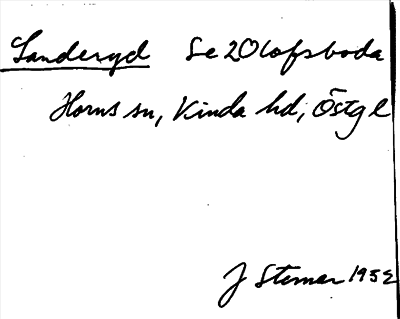 Sanderyd Se 2 Olofsboda
Horns sn, Kinda hd, Östgl
J Stemar 1952